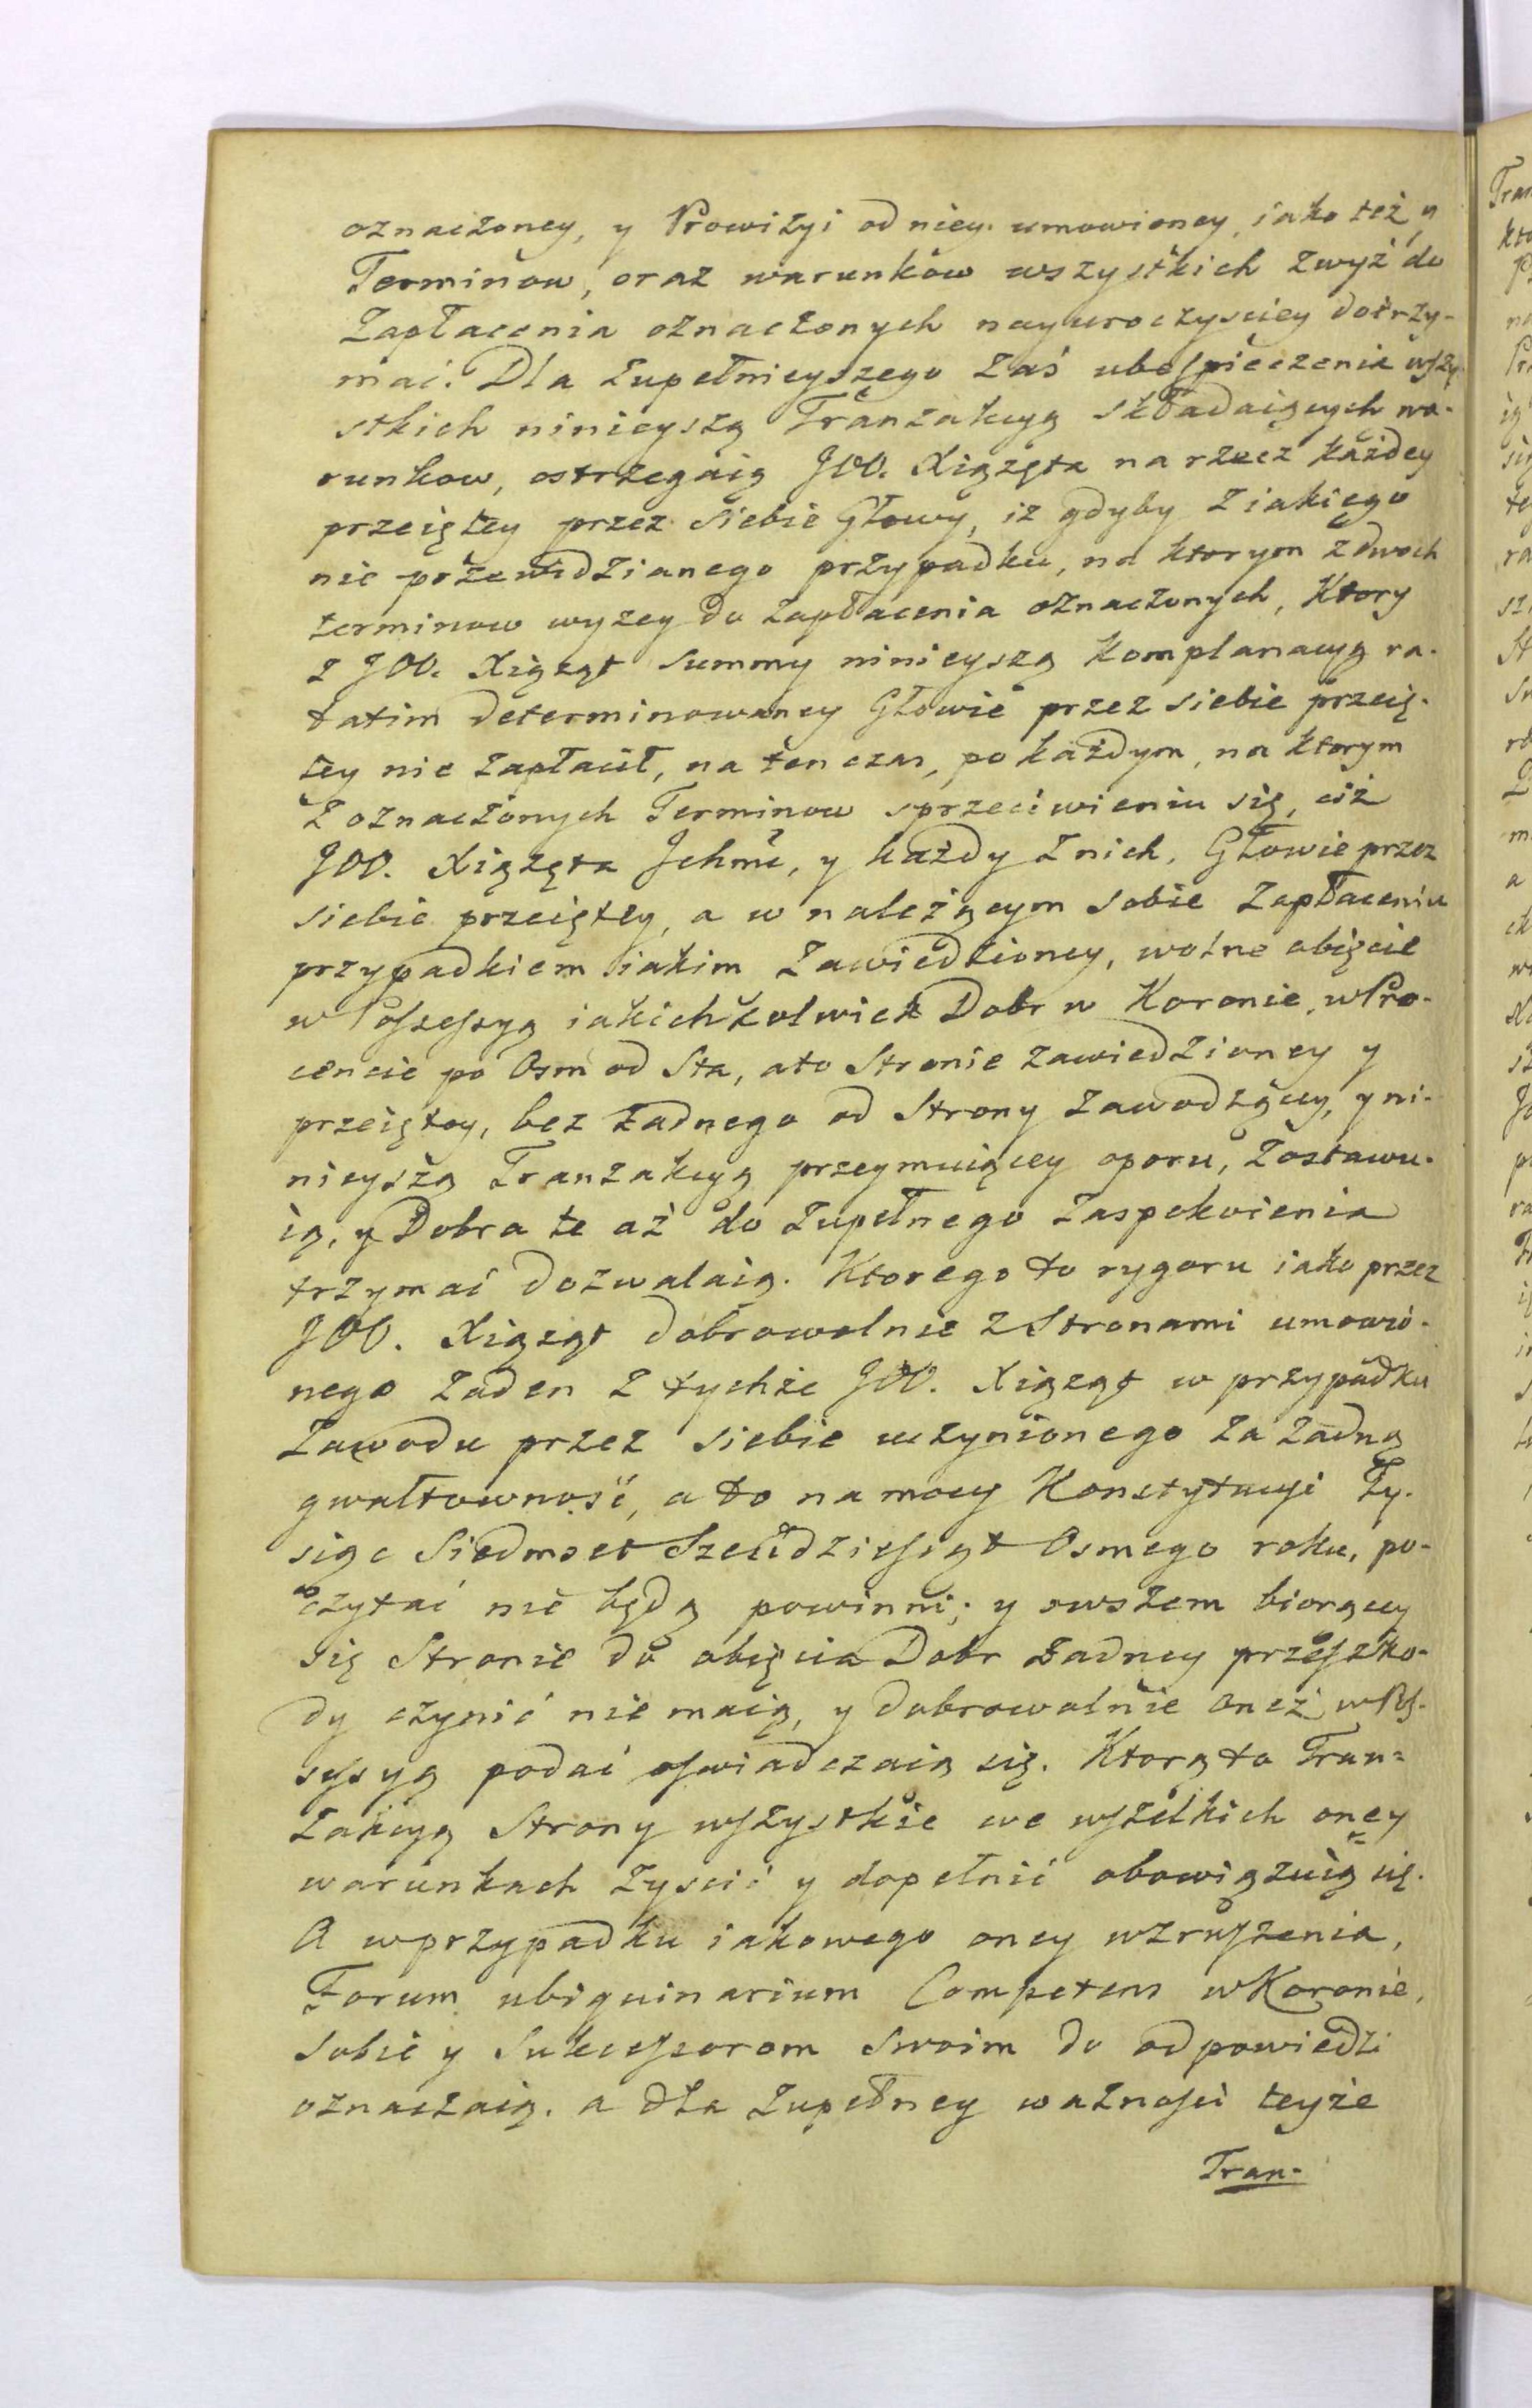 oznaczoney, y Prowizyi od niey umowioney, iako też y
Terminow, oraz warunkow wszystkich zwyż do
Zapłacenia oznaczonych nayuroczysciey dotrzy-
mać. Dla zupełnieyszego zaś ubeſpieczenia wſzy-
stkich ninieyszą Tranzakcyą składaiących wa-
runkow, ostrzegaią JOO. Xiążęta na rzecz każdey
przeiętey przez siebie Głowy, iż gdyby z iakiego
nie przewidzianego przypadku, na ktorym z dwoch
terminow wyzey do zapłacenia oznaczonych, Ktory
z JOO. Xiążąt summy ninieyszą Komplanacyą ra-
tatim determinowaney Głowie przez siebie przeię-
tey nie zapłacił, na ten czas, po każdym, na ktorym
z oznaczonych Terminow sprzeciwieniu się, ciż
JOO. Xiążęta Jchmć, y każdy z nich, Głowie przez
siebie przeiętey, a w należącym sobie Zapłaceniu
przypadkiem iakim Zawiedzioney, wolne obięcie
w Poſseſsyą iakichkolwiek Dobr w Koronie, w Pro-
cencie po Osm od Sta, a to Stronie zawiedzioney y
przeiętey, bez żadnego od Strony zawodzącey, y ni-
nieyszą Tranzakcyą przeymuiącey oporu, zostawu-
ią, y Dobra te aż do zupełnego zaspokoienia
trzymać dozwalaią. Ktorego to rygoru iako przez
JOO. Xiążąt dobrowolnie z Stronami umowio-
nego żaden z tychże JOO. Xiążąt w przypadku
Zawodu przez siebie uczynionego za żadną
gwałtowność, a to na mocy Konstytucyi Ty-
siąc Siedmset Szeſdzieſiąt Osmego roku, po-
czytać nie będą powinni; y owszem biorącey
się Stronie do obięcia Dobr żadney przeſzko-
dy czynić nie maią, y dobrowolnie oneż w Poſ-
seſsyą podać oſwiadczaią się. Ktorą to Tran=
zakcyą Strony wſzystkie we wſzelkich oney
warunkach zyscić y dopełnić obowiązuią się.
A w przypadku iakowego oney wzruſzenia,
Forum ubiquinarium Competens w Koronie,
sobie y Sukceſsorom Swoim do odpowiedzi
oznaczaią. a dla zupełney ważnoſci teyże
Tran-